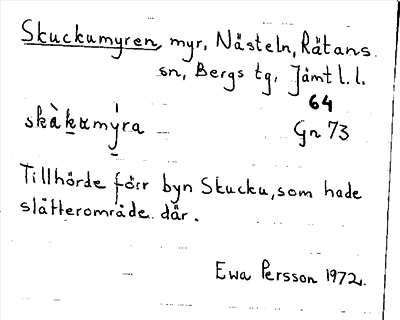 Skuckumyren, myr, Nästeln, Rätans
sn, Bergs tg, Jämtl.l.
64
skàkumýra Gn 73
Tillhörde förr byn Skucku, som hade
slåtterområde där.
Ewa Persson 1972.